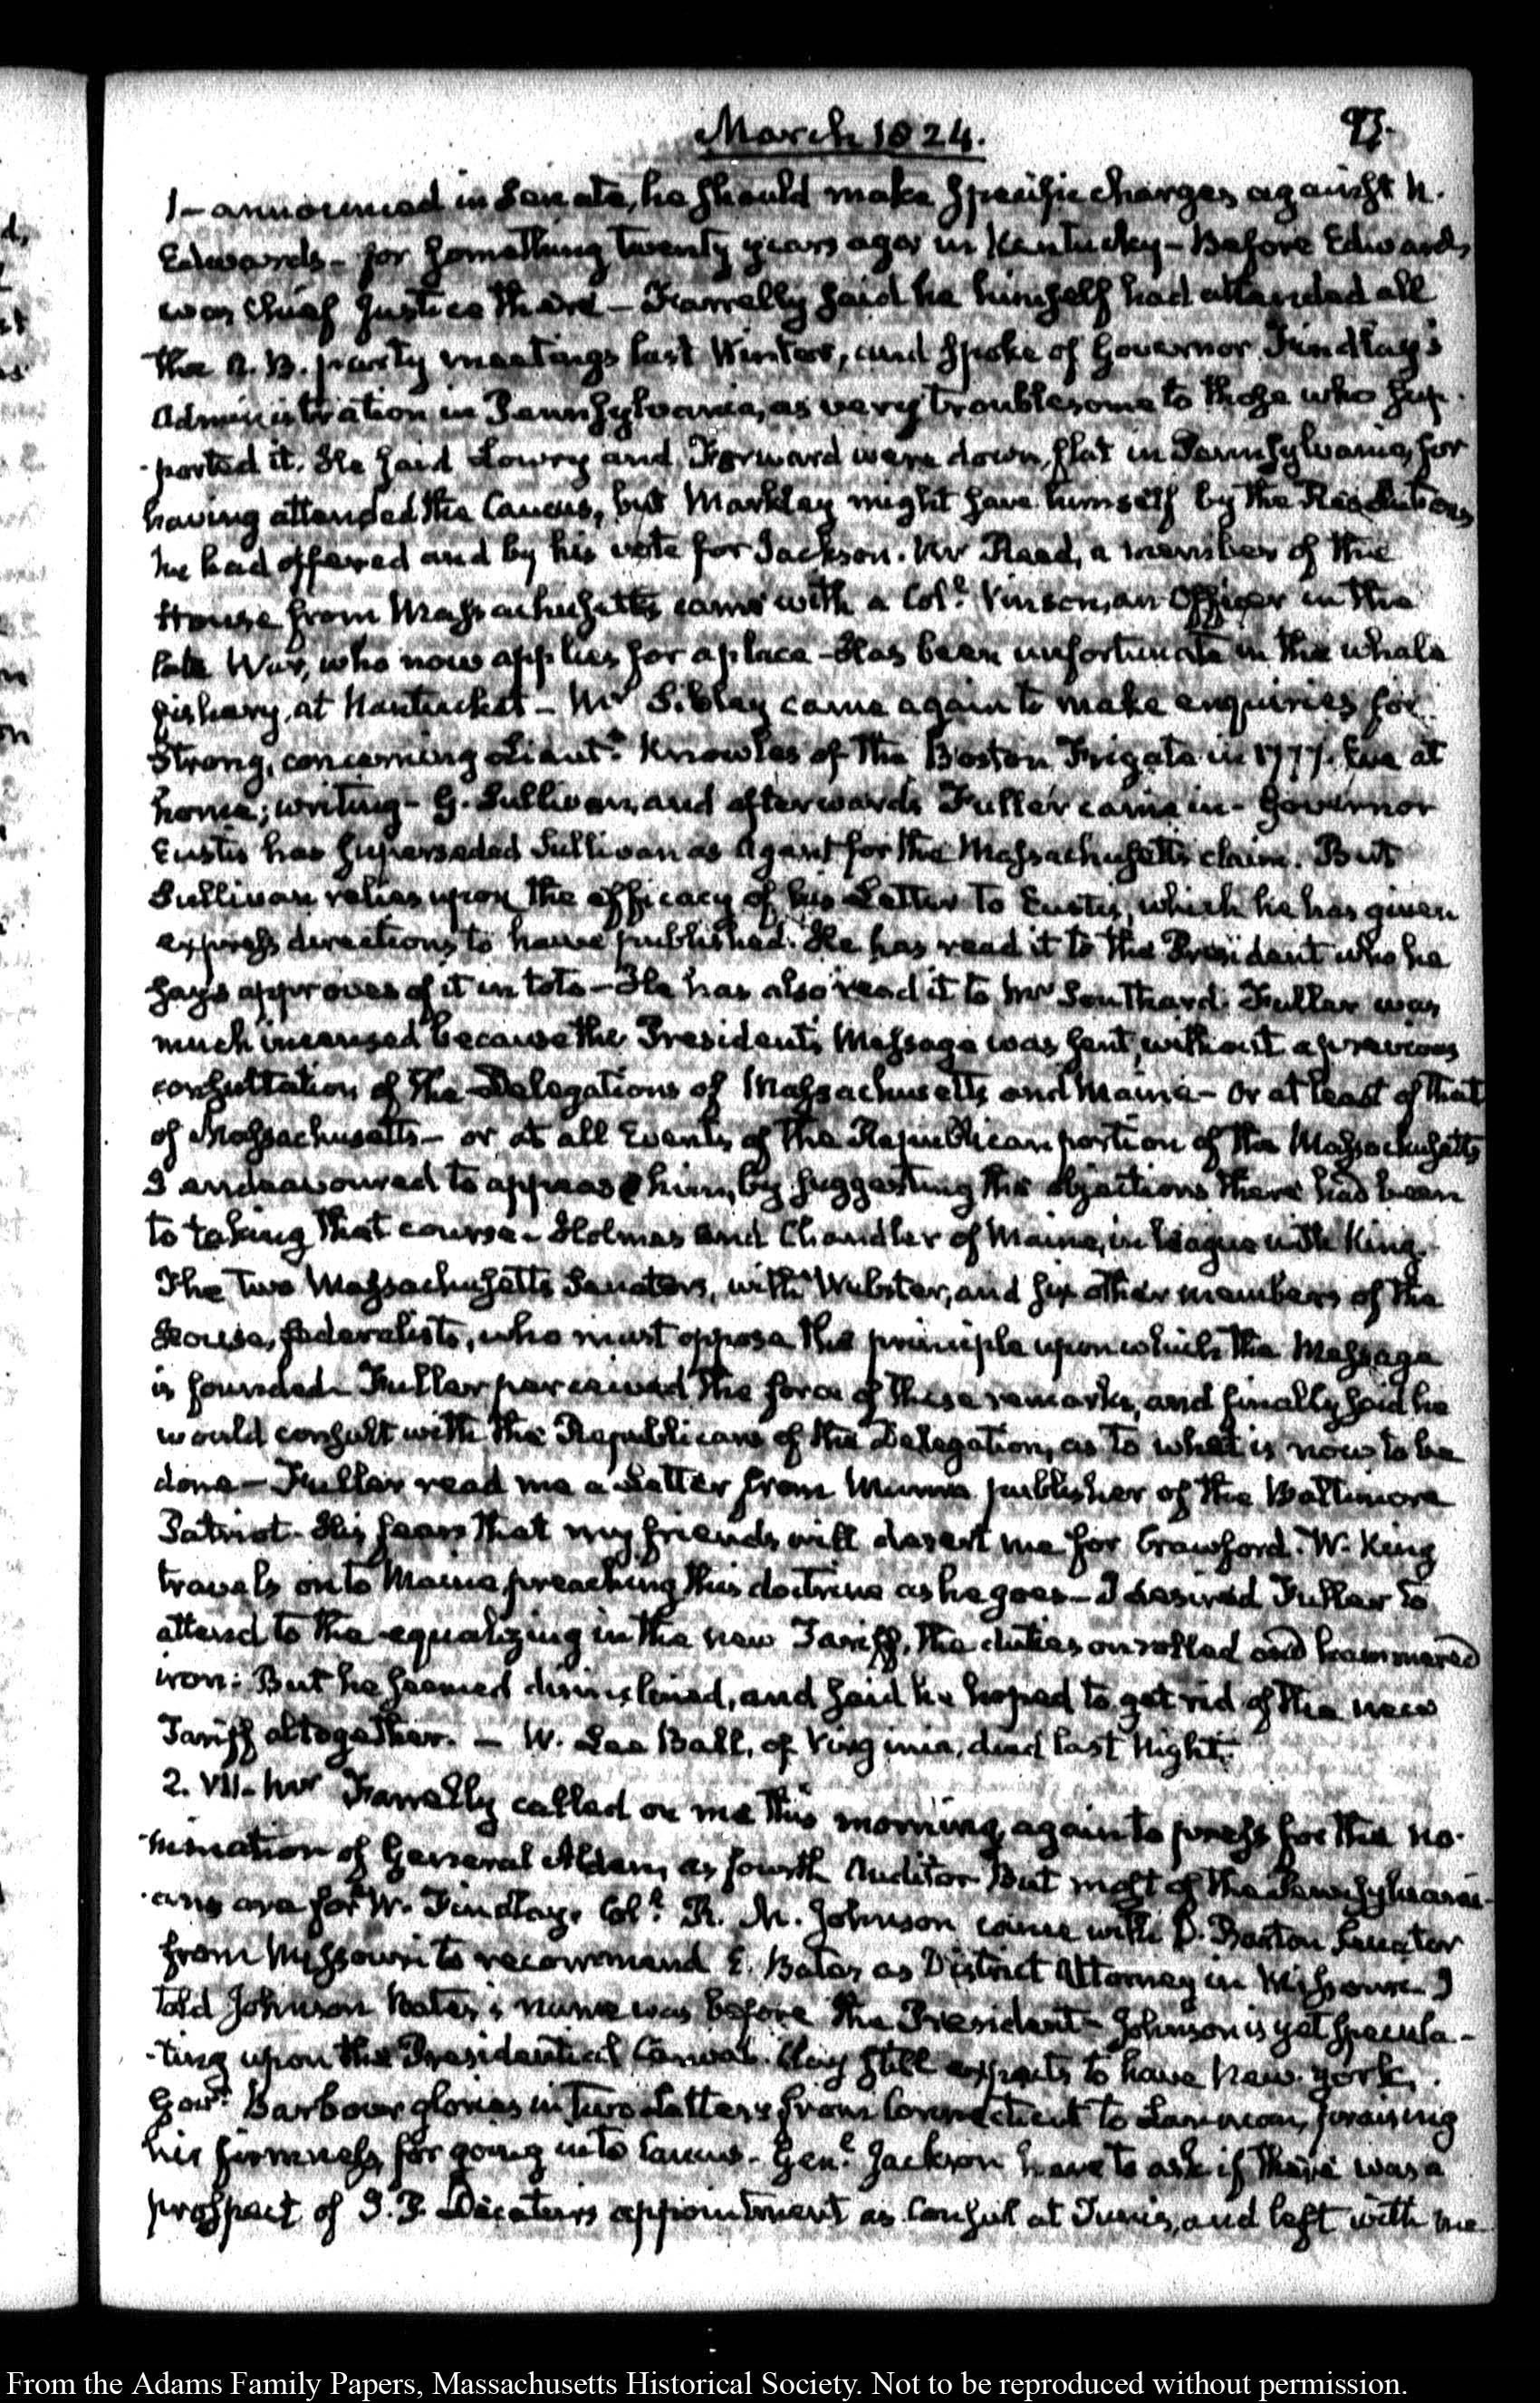 March 1824.
93.
1 – announced in Senate, he should make specific charges against N.
Edwards – for something twenty years ago in Kentucky – Before Edwards
was chief Justice there – Farrelly said he himself had attended all
the A. B. party meetings last Winter, and spoke of Governor Findlay's
Administration in Pennsylvania, as very troublesome to those who sup-
-ported it. He said Lowry and Forward were down flat in Pennsylvania, for
having attended the Caucus, but Markley might save himself by the Resolutions
he had offered and by his vote for Jackson. Mr Reed, a member of the
House from Massachusetts came with a Coll. Vinson, an Officer in the
late War, who now applies for a place – Has been unfortunate in the whale
fishery, at Nantucket – Mr Sibley came again to make enquiries for
Strong, concerning Lieutt. Knowles of the Boston Frigate in 1777. Eve at
home; writing – G. Sullivan, and afterwards Fuller came in – Governor
Eustis has superseded Sullivan as Agent for the Massachusetts claim. But
Sullivan relies upon the efficacy of his Letter to Eustis, which he has given
express directions to have published. He has read it to the President who he
says approves of it in toto – He has also read it to Mr Southard. Fuller was
much incensed because the President's Message was sent, without a previous
consultation of the Delegations of Massachusetts and Maine – or at least of that
of Massachusetts – or at all Events of the Republican portion of the Massachusetts
I endeavoured to appease him, by suggesting the objections there had been
to taking that course – Holmes and Chandler of Maine, in league with King.
The two Massachusetts Senators, with Webster, and six other members of the
House, federalists, who must oppose the principle upon which the Message
is founded – Fuller perceived the force of these remarks, and finally said he
would consult with the Republicans of the Delegation, as to what is now to be
done – Fuller read me a Letter from Munroe publisher of the Baltimore
Patriot. His fears that my friends will desert me for Crawford. W. King
travels on to Maine preaching this doctrine as he goes – I desired Fuller to
attend to the equalizing in the new Tariff, the duties on rolled and hammered
iron: But he seemed disinclined, and said he hoped to get rid of the new
Tariff altogether. – W. Lee Ball, of Virginia, died last Night.
2. VII. Mr Farrelly called on me this morning, again to press for the no-
-mination of General Alden, as fourth Auditor – But most of the Pennsylvani-
-ans are for W. Findlay. Coll. R. M. Johnson came with D. Barton Senator
from Missouri to recommend E. Bates as District Attorney in Missouri – I
told Johnson Bates's name was before the President – Johnson is yet specula-
-ting upon the Presidential Canvas. Clay still expects to have New-York.
Govr. Barbour glories in two Letters from Connecticut to Lanman, praising
his firmness, for going into Caucus – Genl. Jackson here to ask if there was a
prospect of J. P. Decatur's appointment as Consul at Tunis, and left with me